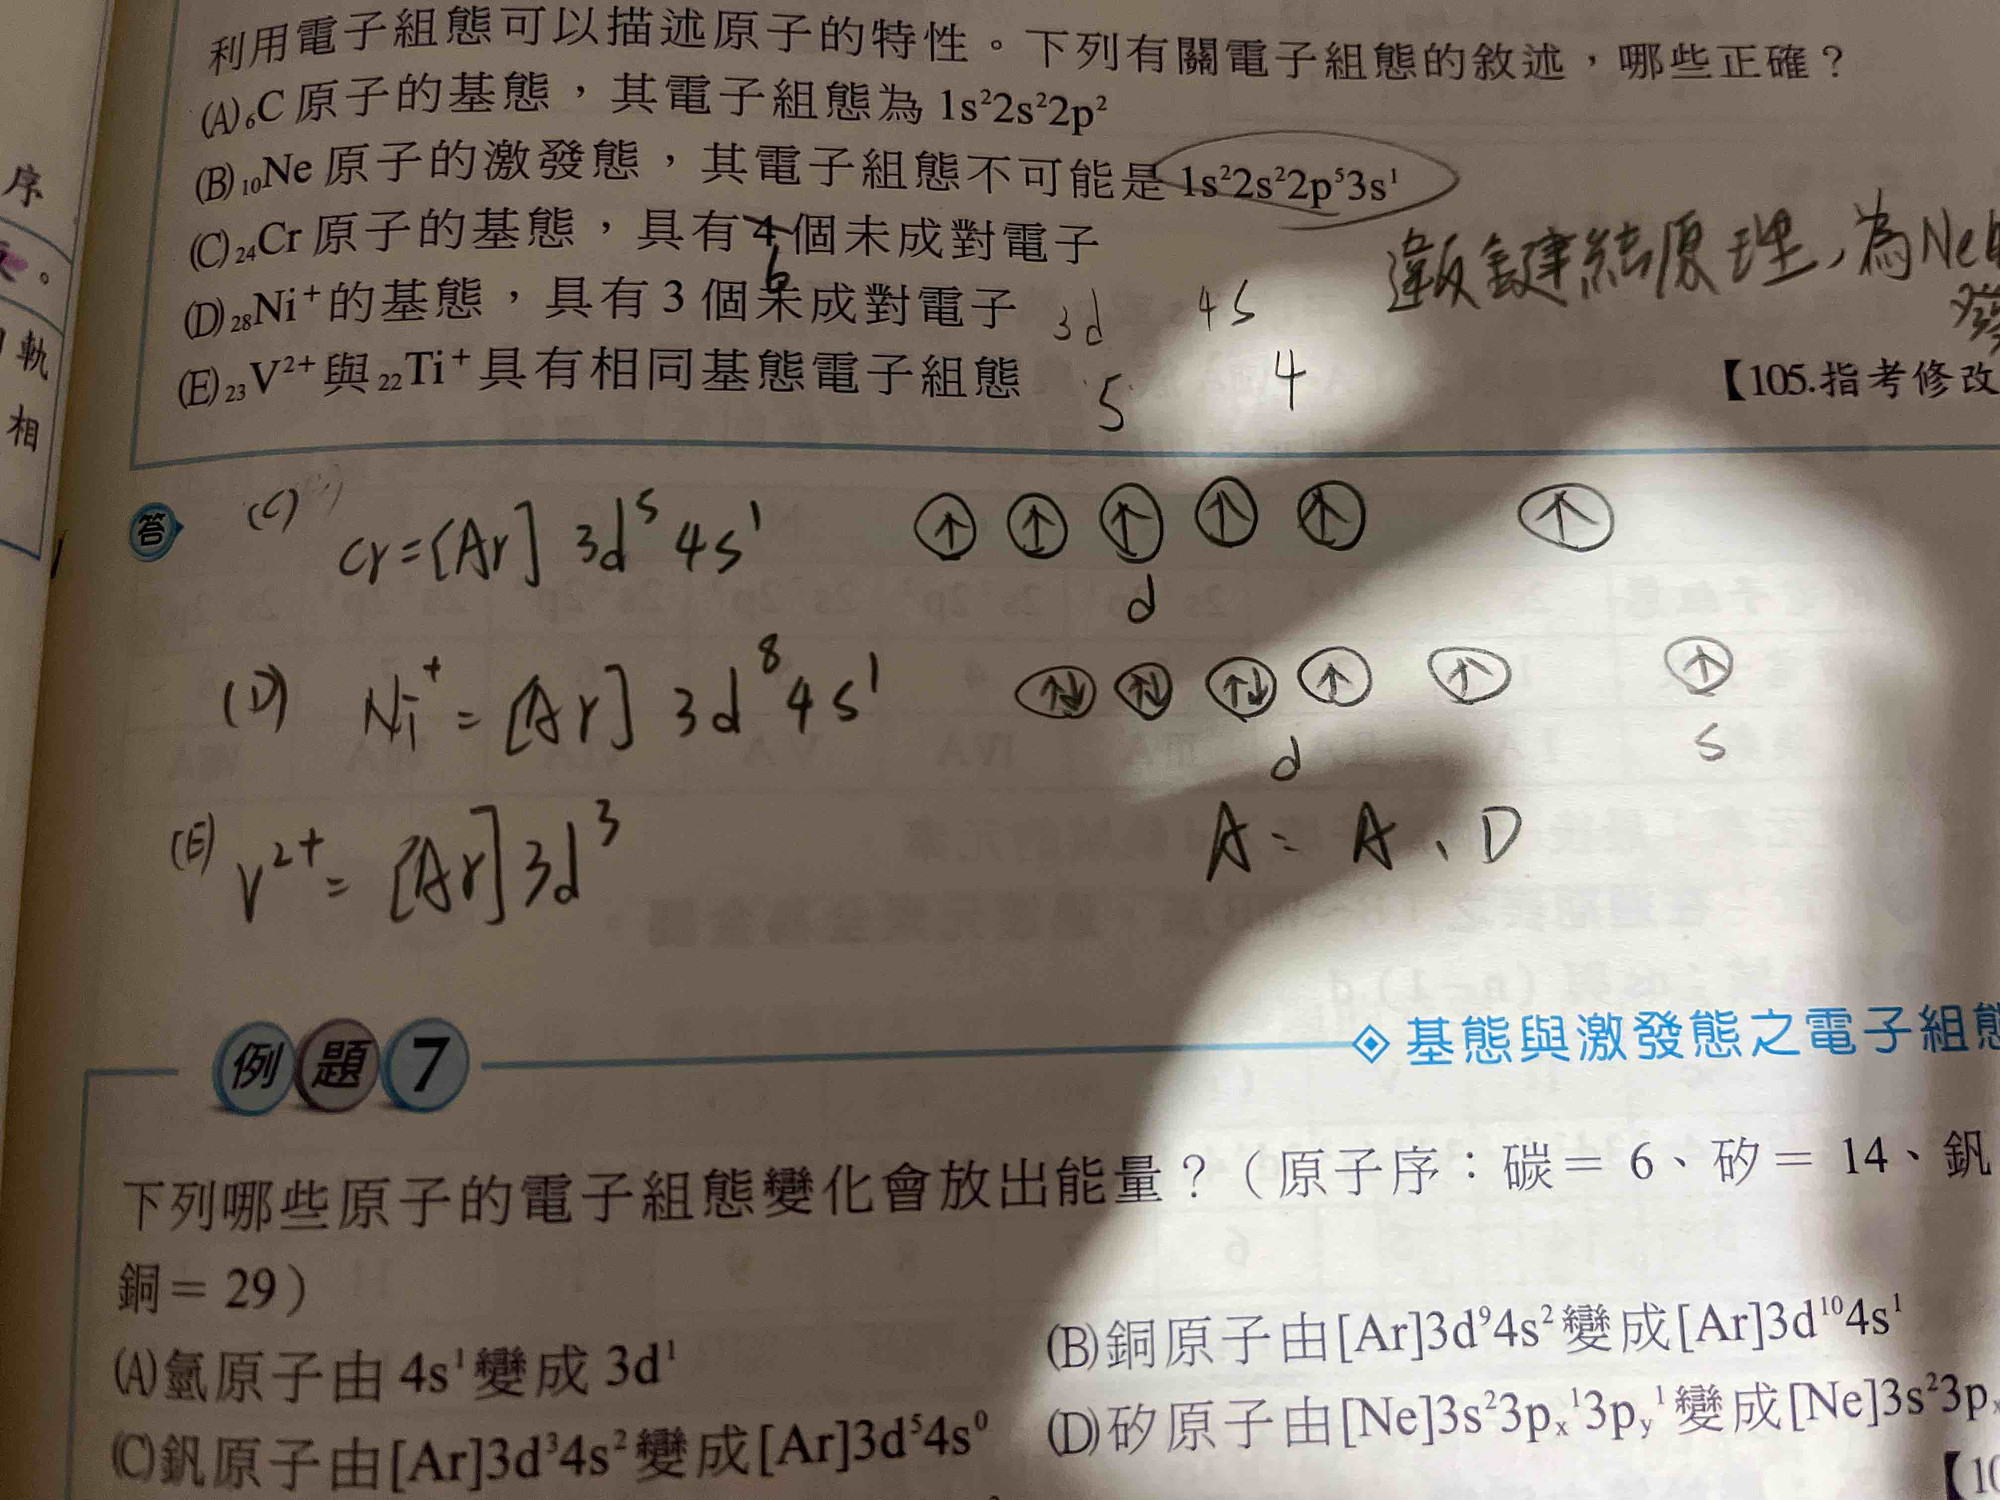 利用電子組態可以描述原子的特性。下列有關電子組態的敘述，哪些正確？
(A)₆C 原子的基態，其電子組態為 1s²2s²2p²
(B)₁₀Ne 原子的激發態，其電子組態不可能是 1s²2s²2p⁵3s¹
序
(C)₂₄Cr 原子的基態，具有 4 個未成對電子
6
違叛鍵結原理，為Ne
(D)₂₈Ni⁺的基態，具有 3 個未成對電子
3d 4s
軌
(E)₂₃V²⁺與₂₂Ti⁺具有相同基態電子組態
5 4
【105.指考修改
相
答
(C) Cr=[Ar] 3d⁵ 4s¹ ↑ ↑ ↑ ↑ ↑ ↑
d
(D) Ni⁺=[Ar] 3d⁸4s¹ ↑↓ ↑↓ ↑↓ ↑ ↑ ↑
d s
(E) V²⁺=[Ar]3d³
A: A、D
例題7
◇基態與激發態之電子組態
下列哪些原子的電子組態變化會放出能量？（原子序：碳＝ 6、矽＝ 14、釩
銅＝ 29）
(A)氫原子由 4s¹變成 3d¹ (B)銅原子由[Ar]3d⁹4s²變成[Ar]3d¹⁰4s¹
(C)釩原子由[Ar]3d³4s²變成[Ar]3d⁵4s⁰ (D)矽原子由[Ne]3s²3pₓ¹3pᵧ¹變成[Ne]3s²3pₓ
【10